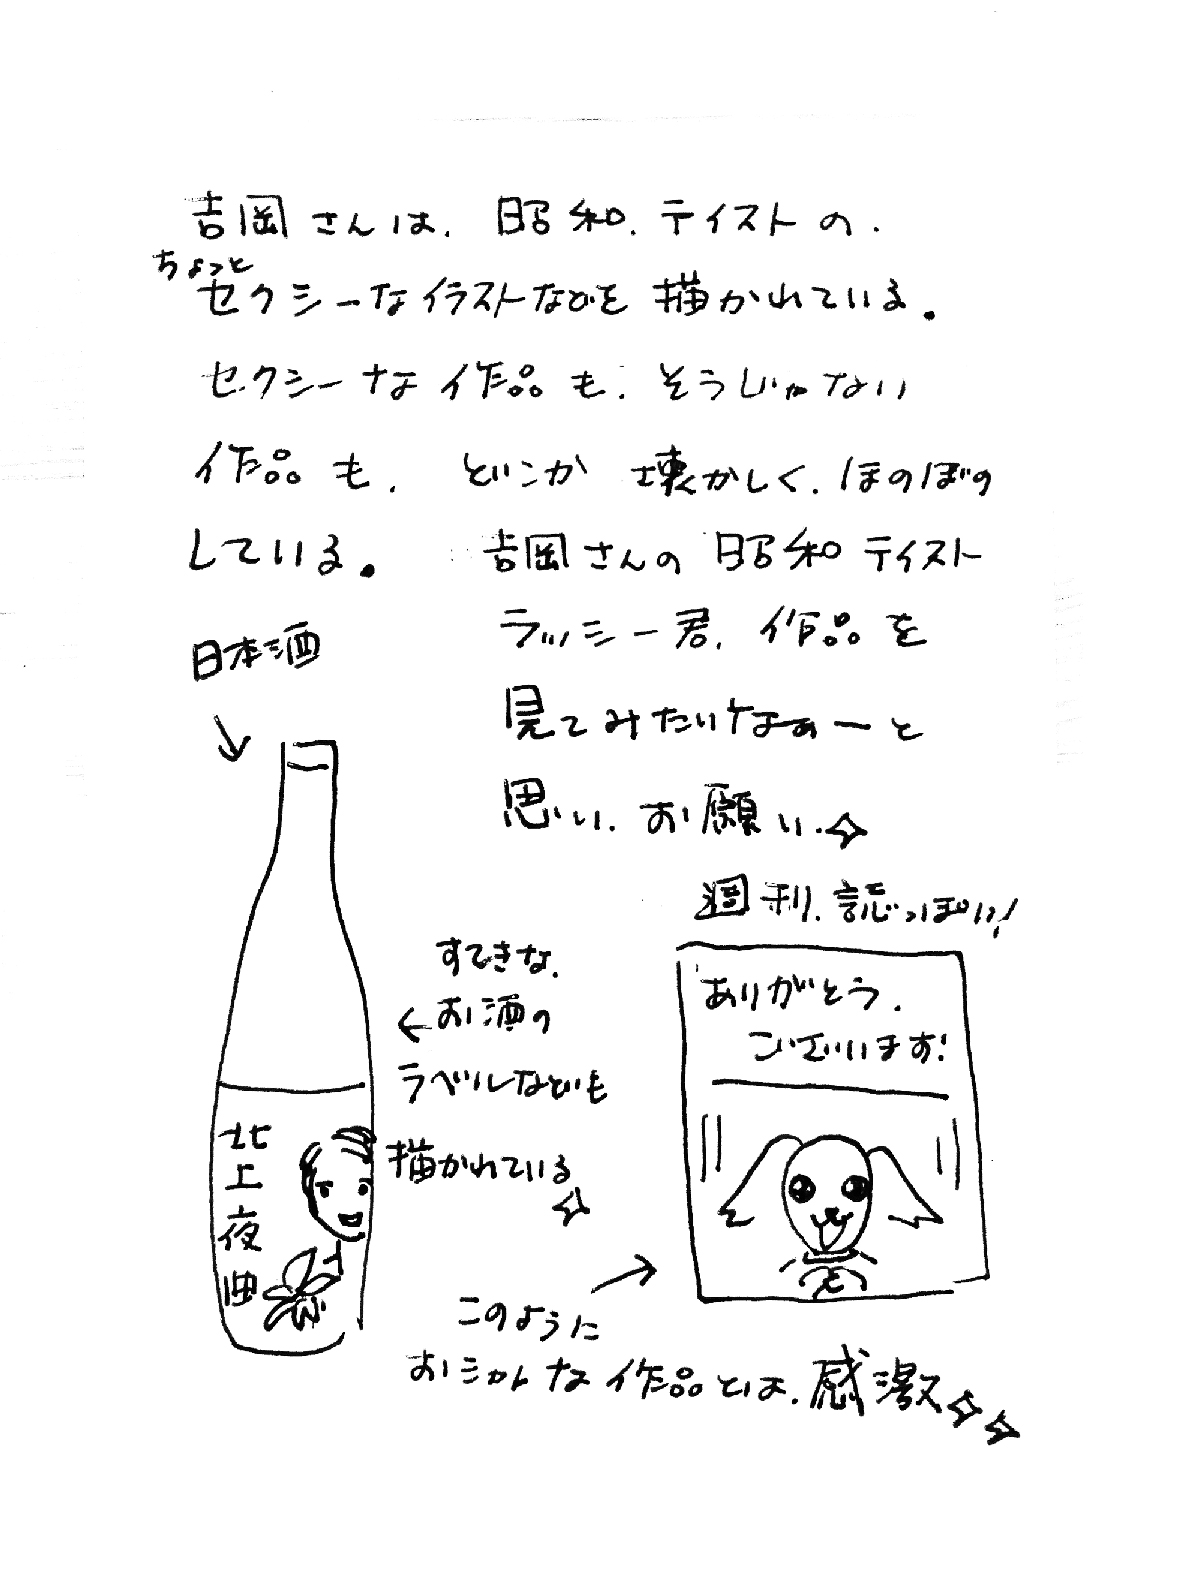 吉岡さんは、昭和、テイストの、
ちょっと
セクシーなイラストなどを描かれている。
セクシーな作品も、そうじゃない
作品も、どこか壊かしく、ほのぼの
している。
吉岡さんの昭和テイスト
ラッシー君、作品を
見てみたいなぁーと
思い、お願い、
日本酒
すてきな、
お酒の
ラベルなども
描かれている
北上夜曲
週刊、誌っぽい!
ありがとう、
ございます!
このように
おシャレな作品とは、感激